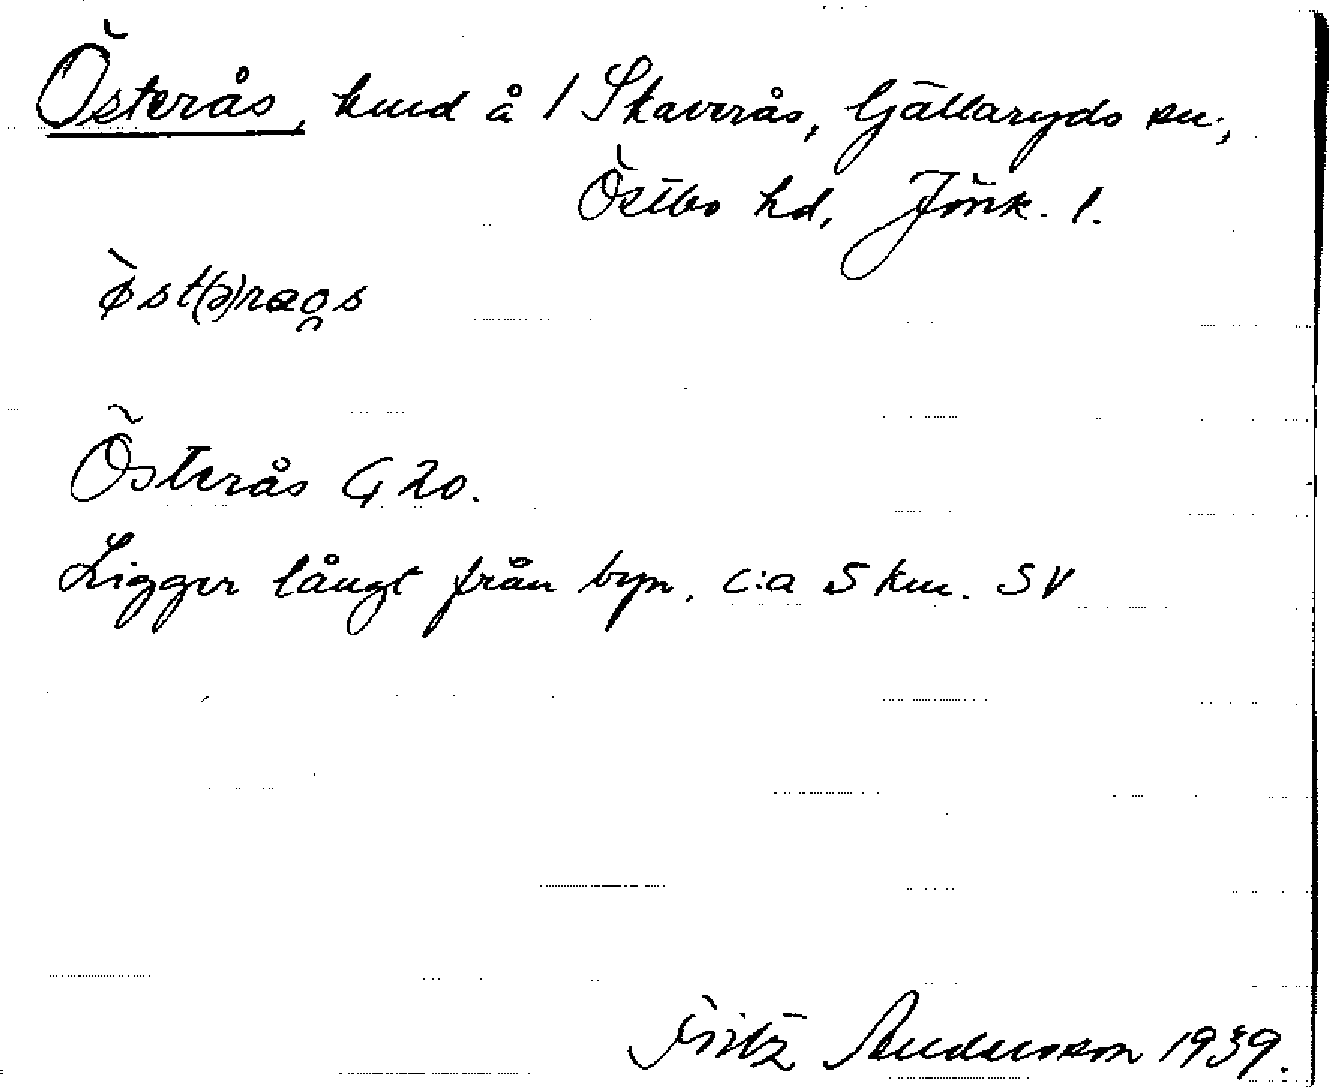 Österås, hmd å 1 Skaverås, Gällaryds sn.,
Östbo hd, Jönk. l.
øst(ə)ræo̯s
Österås G 20.
Ligger långt från byn. c:a 5 km. SV
Fritz Andersson 1939.